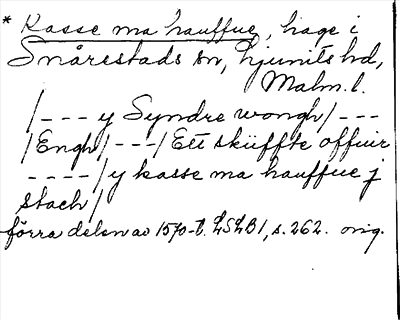 * Kasse ma hauffue, hage i
Snårestads sn, Ljunits hd,
Malm. l.
/--- y Syndre wongh/---
/Engh/---/Ett skiffte offuir
----/y kasse ma hauffue j
stach/
förra delen av 1570-t. LSLB1, s. 262. orig.